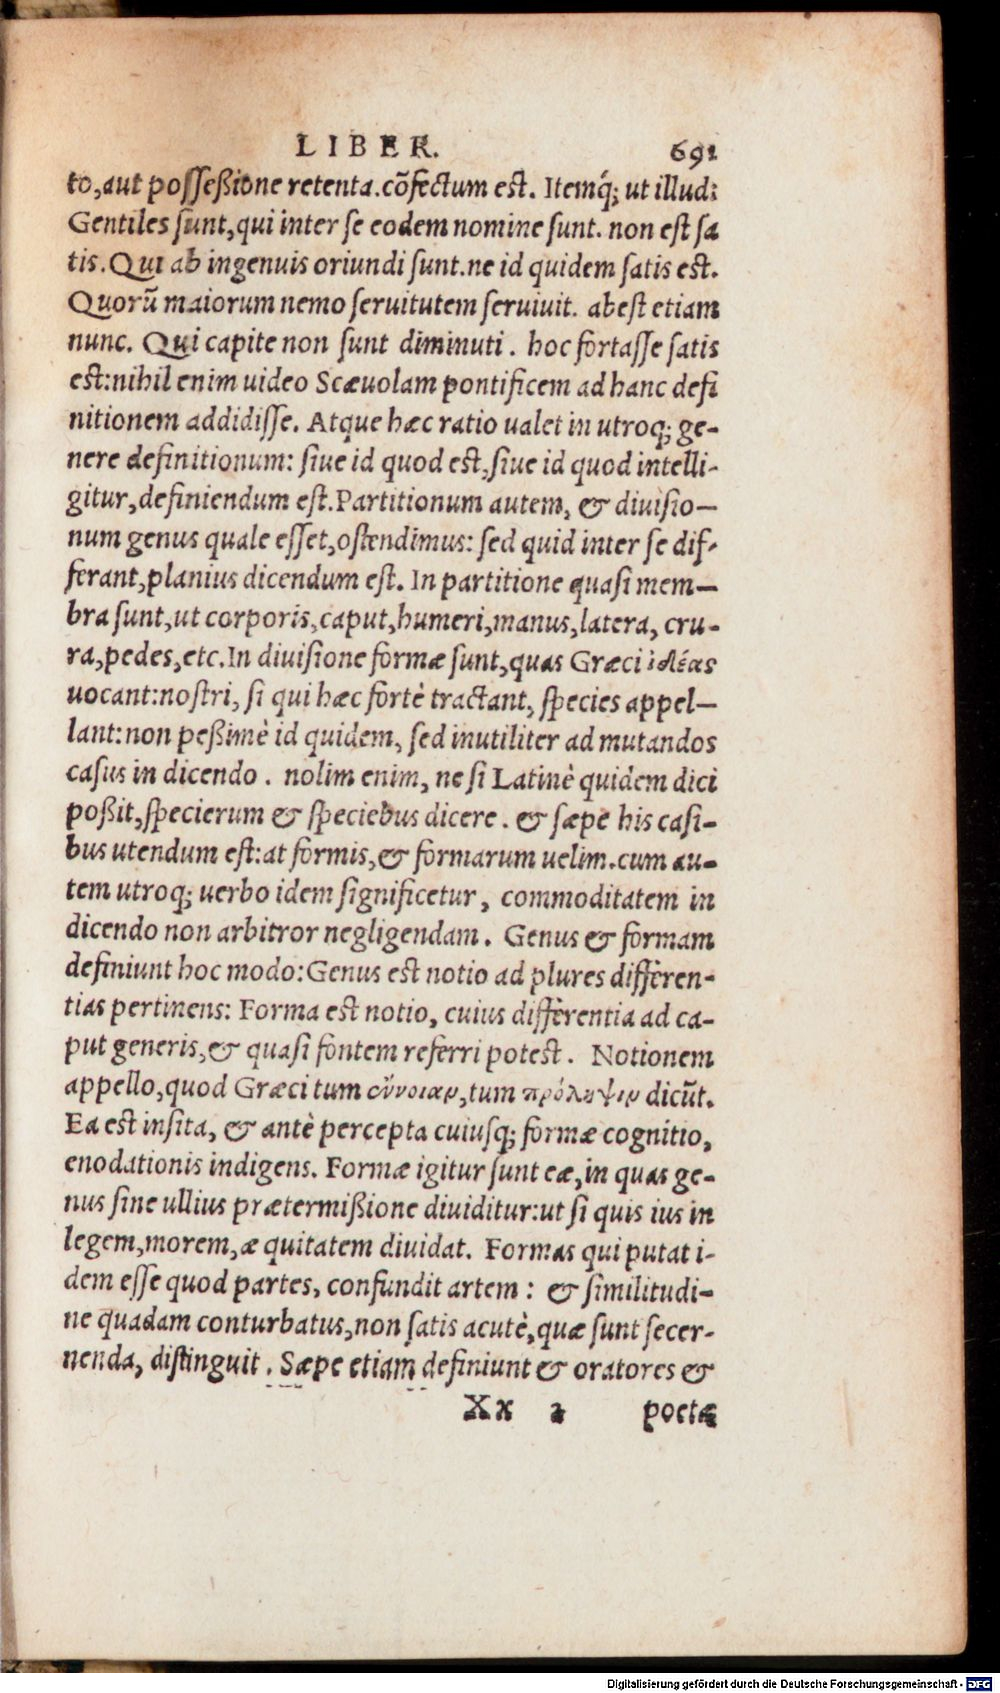 LIBER. 691
to,aut posseßione retenta.cõfectum est. Itemq́; ut illud:
Gentiles sunt,qui inter se eodem nomine sunt. non est sa
tis. Qui ab ingenuis oriundi sunt.ne id quidem satis est.
Quorũ maiorum nemo seruitutem seruiuit. abest etiam
nunc. Qui capite non sunt diminuti. hoc fortasse satis
est:nihil enim uideo Scæuolam pontificem ad hanc defi
nitionem addidisse. Atque hæc ratio ualet in utroq; ge-
nere definitionum: siue id quod est,siue id quod intelli-
gitur,definiendum est.Partitionum autem, & diuisio—
num genus quale esset,ostendimus: sed quid inter se dif-
ferant,planius dicendum est. In partitione quasi mem—
bra sunt,ut corporis,caput,humeri,manus,latera, cru-
ra,pedes,etc.In diuisione formæ sunt,quas Græci ἰδέας
uocant:nostri, si qui hæc fortè tractant, species appel—
lant:non peßimè id quidem, sed inutiliter ad mutandos
casus in dicendo. nolim enim, ne si Latinè quidem dici
poßit,specierum & speciebus dicere. & sæpe his casi-
bus utendum est:at formis,& formarum uelim.cum au-
tem utroq; uerbo idem significetur, commoditatem in
dicendo non arbitror negligendam. Genus & formam
definiunt hoc modo:Genus est notio ad plures differen-
tias pertinens: Forma est notio, cuius differentia ad ca-
put generis,& quasi fontem referri potest. Notionem
appello,quod Græci tum ἔννοιαν,tum πρόληψιν dicũt.
Ea est insita, & antè percepta cuiusq; formæ cognitio,
enodationis indigens. Formæ igitur sunt eæ,in quas ge-
nus sine ullius prætermißione diuiditur:ut si quis ius in
legem,morem,æquitatem diuidat. Formas qui putat i-
dem esse quod partes, confundit artem: & similitudi-
ne quadam conturbatus,non satis acutè,quæ sunt secer-
nenda, distinguit. Sæpe etiam definiunt & oratores &
Xx 2 poetæ
Digitalisierung gefördert durch die Deutsche Forschungsgemeinschaft - DFG